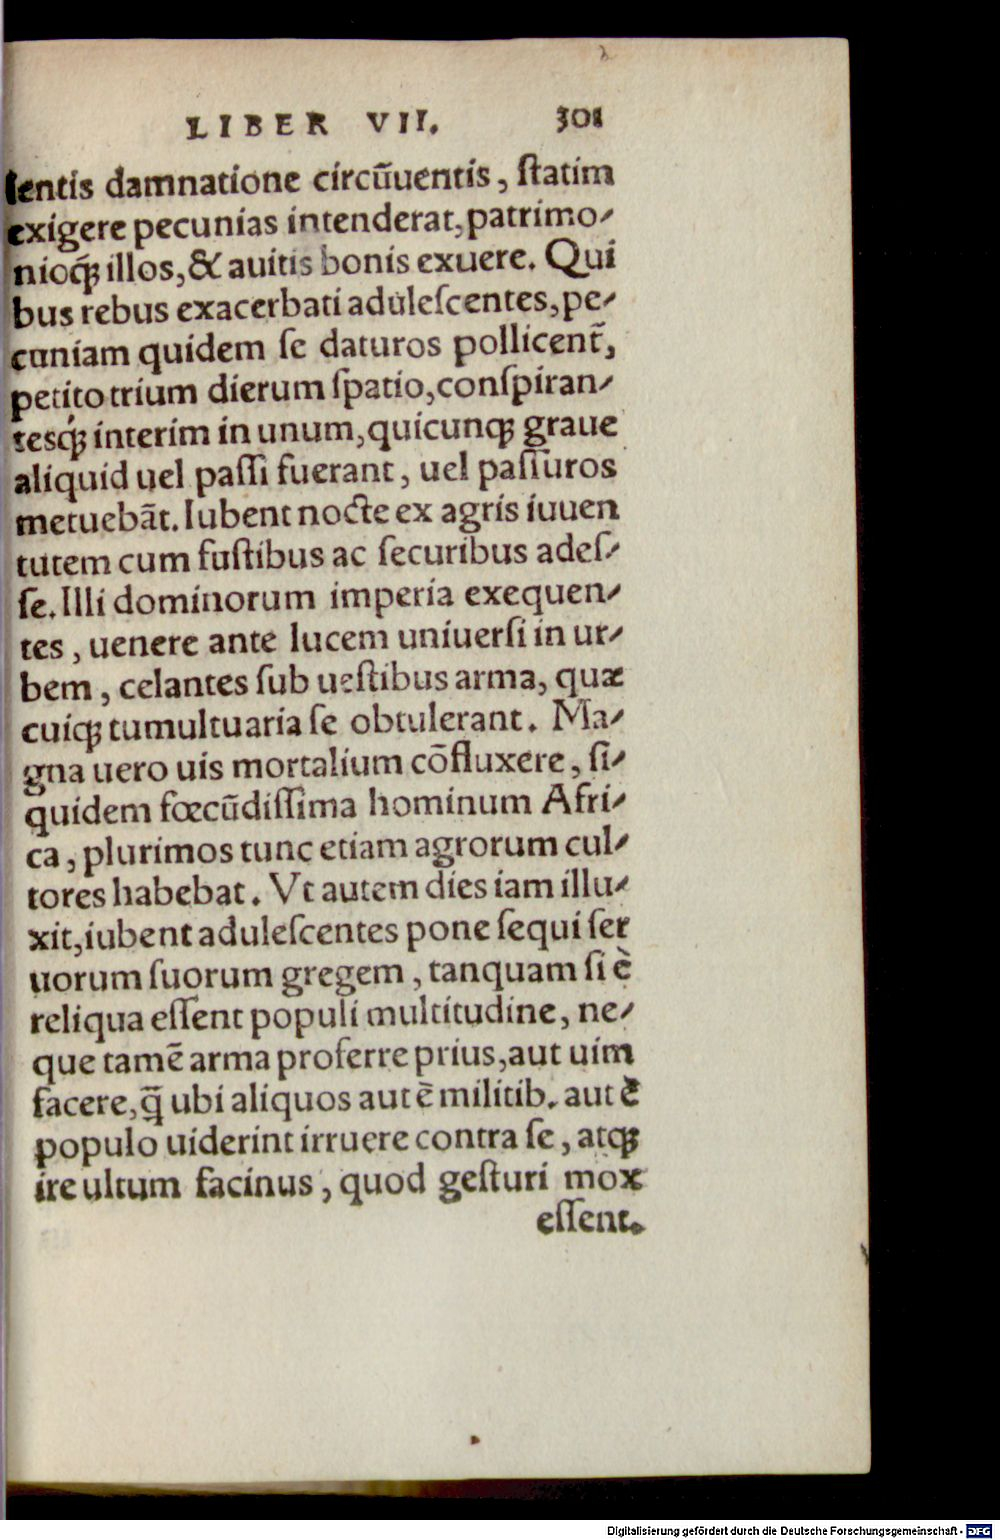 LIBER VII. 301
lentis damnatione circũuentis, ſtatim
exigere pecunias intenderat, patrimo-
nioq́ꝫ illos, & auitis bonis exuere. Qui
bus rebus exacerbati aduleſcentes, pe-
cuniam quidem ſe daturos pollicent̃,
petito trium dierum ſpatio, conſpiran-
tesq́ꝫ interim in unum, quicunqꝫ graue
aliquid uel paſſi fuerant, uel paſſuros
metuebãt. Iubent nocte ex agris iuuen
tutem cum fuſtibus ac ſecuribus adeſ-
ſe. Illi dominorum imperia exequen-
tes, uenere ante lucem uniuerſi in ur-
bem, celantes ſub ueſtibus arma, quæ
cuiqꝫ tumultuaria ſe obtulerant. Ma-
gna uero uis mortalium cõfluxere, ſi-
quidem fœcũdiſſima hominum Afri-
ca, plurimos tunc etiam agrorum cul-
tores habebat. Vt autem dies iam illu-
xit, iubent aduleſcentes pone ſequi ſer
uorum ſuorum gregem, tanquam ſi è
reliqua eſſent populi multitudine, ne-
que tamẽ arma proferre prius, aut uim
facere, q̃ ubi aliquos aut è militib. aut è
populo uiderint irruere contra ſe, atqꝫ
ire ultum facinus, quod geſturi mox
eſſent.
Digitalisierung gefördert durch die Deutsche Forschungsgemeinschaft - DFG